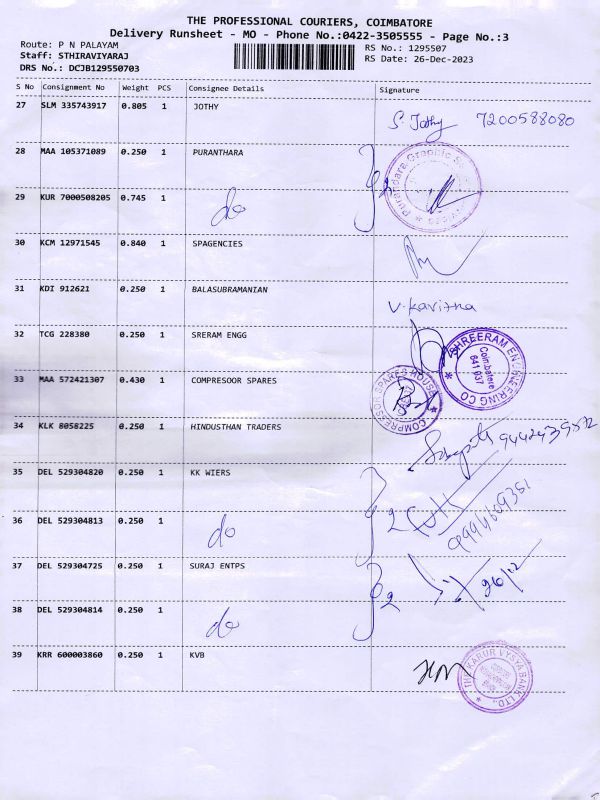 THE PROFESSIONAL COURIERS, COIMBATORE
Delivery Runsheet - MO - Phone No.:0422-3505555 - Page No.:3
Route: P N PALAYAM
RS No.: 1295507
Staff: STHIRAVIYARAJ
RS Date: 26-Dec-2023
DRS No.: DCJB129550703
S No Consignment No Weight PCS Consignee Details Signature
27 SLM 335743917 0.805 1 JOTHY S. Jothy 7200588080
28 MAA 105371089 0.250 1 PURANTHARA 2
29 KUR 7000508205 0.745 1 do
30 KCM 12971545 0.840 1 SPAGENCIES
31 KDI 912621 0.250 1 BALASUBRAMANIAN V. Kavitha
32 TCG 228380 0.250 1 SRERAM ENGG SHREERAM ENGINEERING CO Coimbatore 641 037
33 MAA 572421307 0.430 1 COMPRESOOR SPARES COMPRESSOR SPARES HOUSE
34 KLK 8058225 0.250 1 HINDUSTHAN TRADERS
35 DEL 529304820 0.250 1 KK WIERS 2
36 DEL 529304813 0.250 1 do
37 DEL 529304725 0.250 1 SURAJ ENTPS 2 26/12
38 DEL 529304814 0.250 1 do
39 KRR 600003860 0.250 1 KVB THE KARUR VYSYA BANK LTD.,